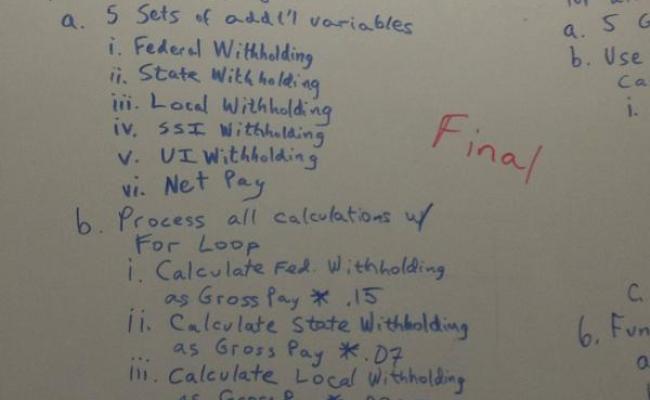 a. 5 Sets of addt'l variables
i. Federal Withholding
ii. State Withholding
iii. Local Withholding
iv. SSI Withholding
v. UI Withholding
vi. Net Pay
b. Process all calculations w/
For Loop
i. Calculate Fed. Withholding
as Gross Pay * .15
ii. Calculate State Withholding
as Gross Pay * .07
iii. Calculate Local Withholding
Final
a. 5
b. Use
i.
c.
6. Fun
a